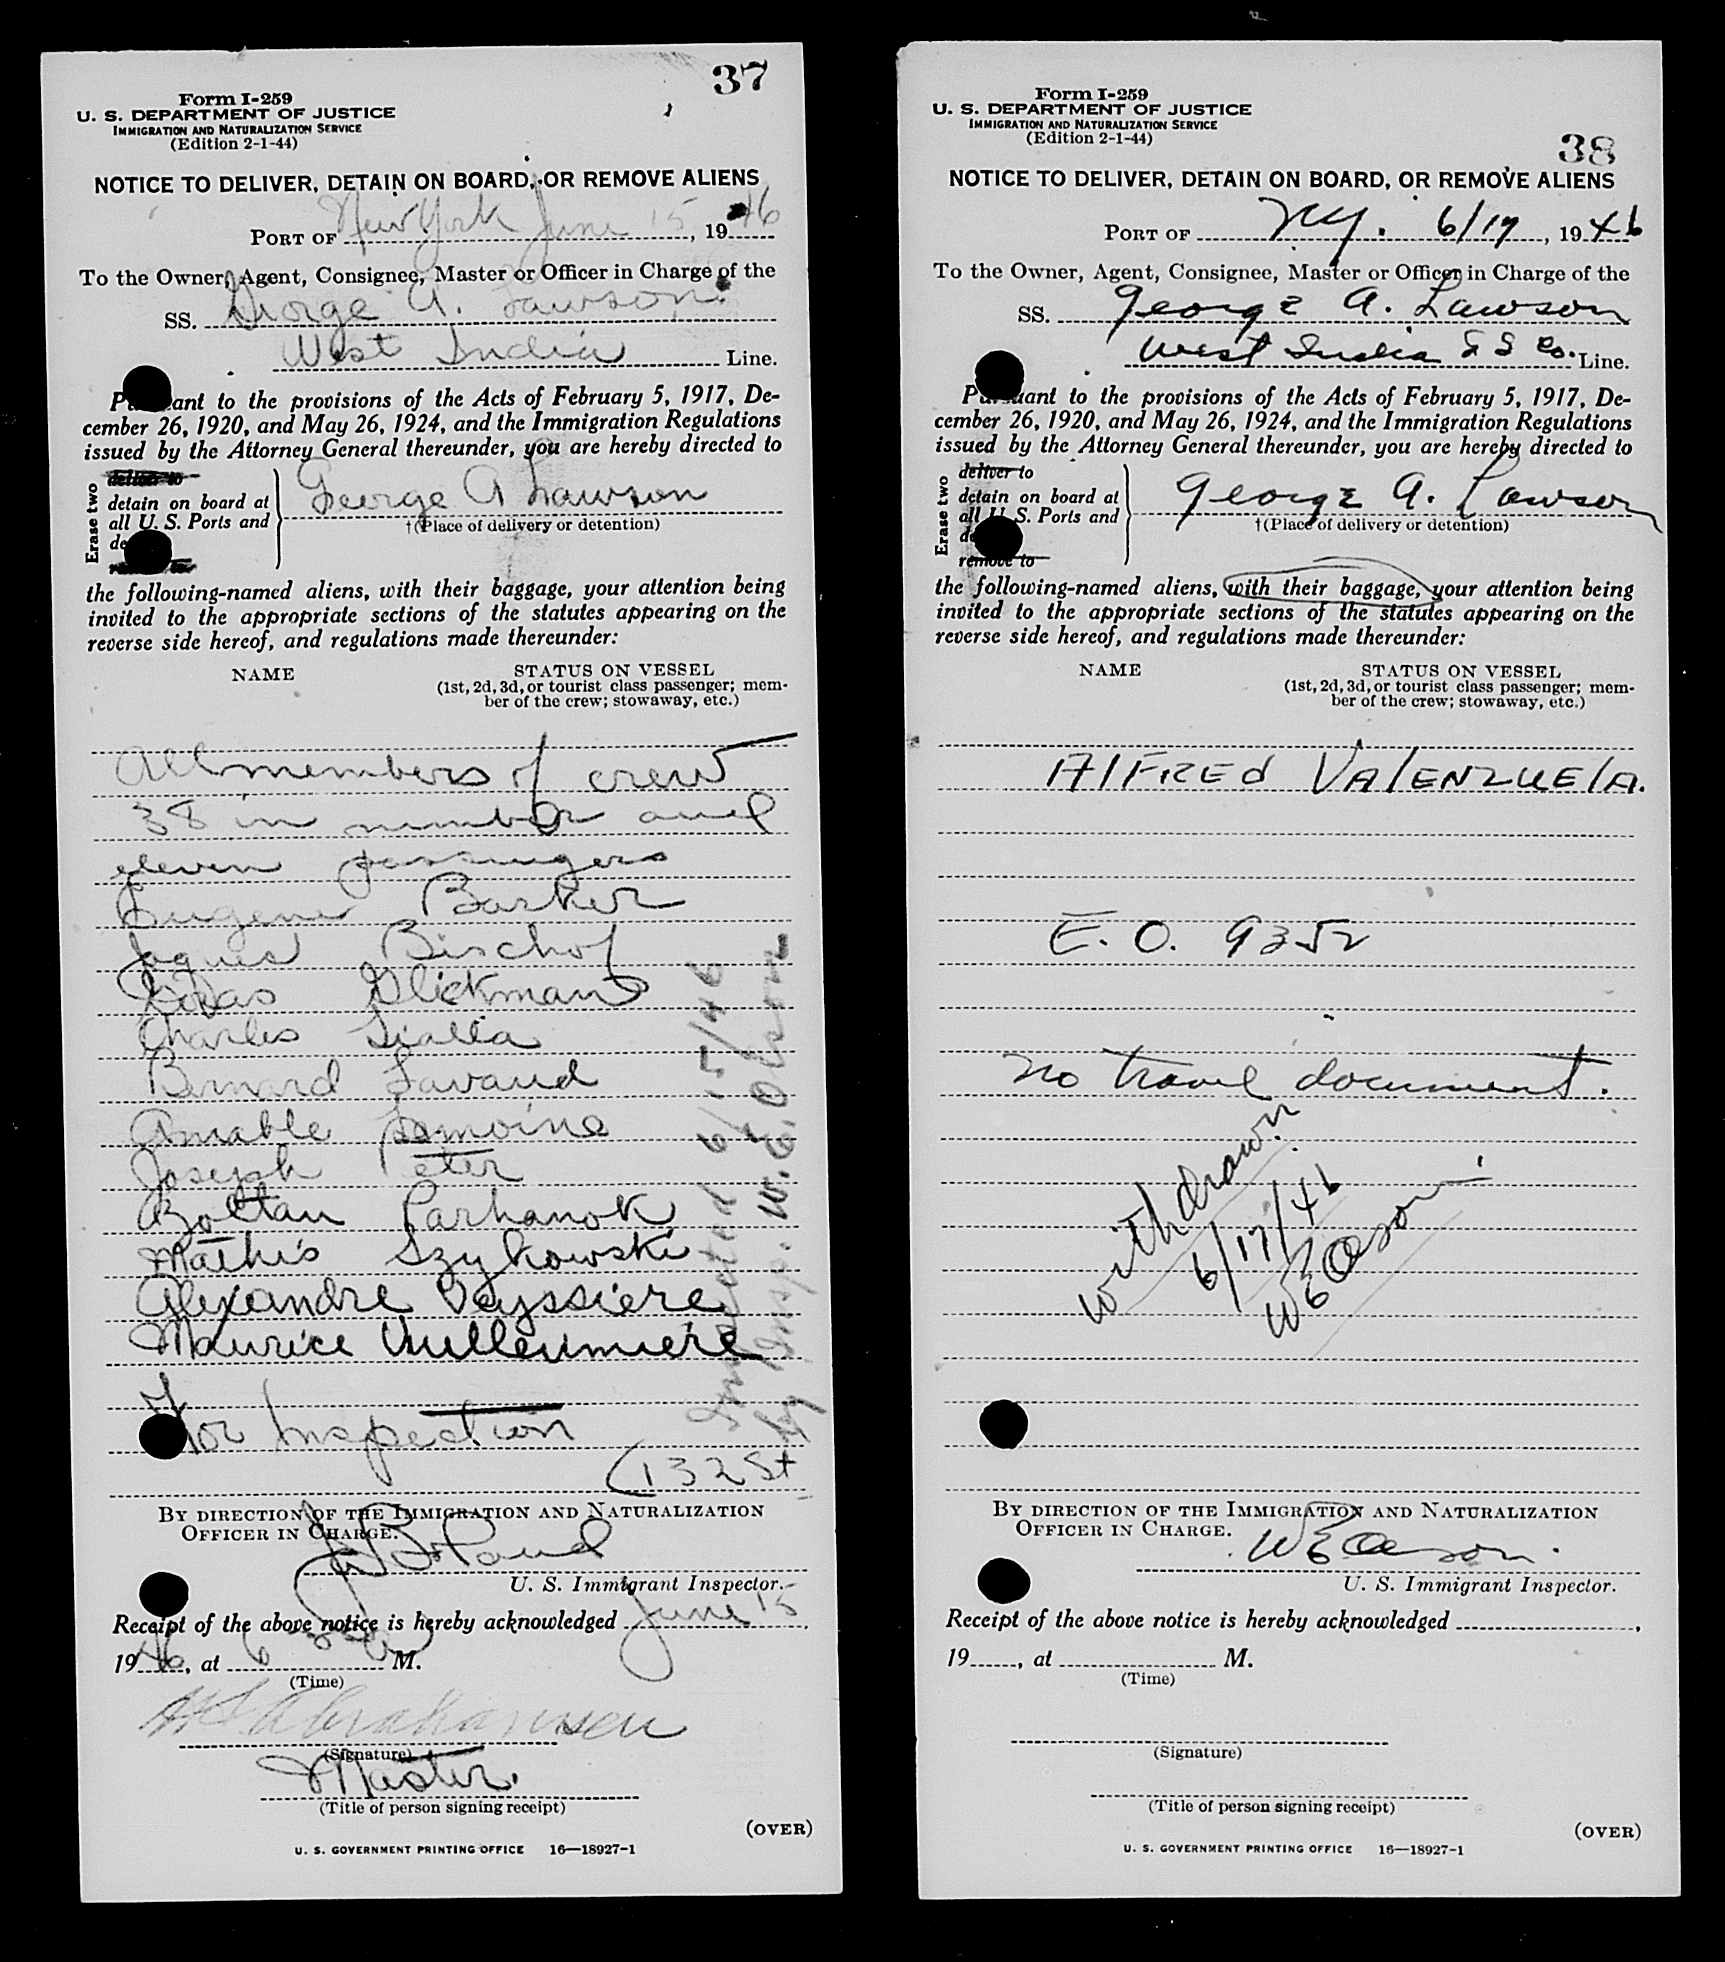 37
Form I-259
U. S. DEPARTMENT OF JUSTICE
IMMIGRATION AND NATURALIZATION SERVICE
(Edition 2-1-44)
NOTICE TO DELIVER, DETAIN ON BOARD, OR REMOVE ALIENS
PORT OF New York June 15, 1946
To the Owner, Agent, Consignee, Master or Officer in Charge of the
SS. George A. Lawson
West India Line.
Pursuant to the provisions of the Acts of February 5, 1917, De-
cember 26, 1920, and May 26, 1924, and the Immigration Regulations
issued by the Attorney General thereunder, you are hereby directed to
Erase two
deliver to
detain on board at
all U. S. Ports and
George A Lawson
†(Place of delivery or detention)
remove to
the following-named aliens, with their baggage, your attention being
invited to the appropriate sections of the statutes appearing on the
reverse side hereof, and regulations made thereunder:
NAME STATUS ON VESSEL
(1st, 2d, 3d, or tourist class passenger; mem-
ber of the crew; stowaway, etc.)
All members of crew
38 in number and
eleven passengers
Eugene Barker
Jaques Bischof
Glickman
Charles Sialla
Bernard Lavaud
Amable Lemoine
Joseph Peter
Zoltan Parhanok
Mathis Szykowski
Alexandre Veyssiere
Maurice Vuilleumiere
For Inspection
(132 St
Inspected 6/15/46
by Insp. W. E. Olson
BY DIRECTION OF THE IMMIGRATION AND NATURALIZATION
OFFICER IN CHARGE.
U. S. Immigrant Inspector.
Receipt of the above notice is hereby acknowledged June 15,
1946, at 6 M.
(Time)
Abrahamsen
(Signature)
Master.
(Title of person signing receipt)
(OVER)
U. S. GOVERNMENT PRINTING OFFICE 16—18927-1
38
Form I-259
U. S. DEPARTMENT OF JUSTICE
IMMIGRATION AND NATURALIZATION SERVICE
(Edition 2-1-44)
NOTICE TO DELIVER, DETAIN ON BOARD, OR REMOVE ALIENS
PORT OF NY. 6/17, 1946
To the Owner, Agent, Consignee, Master or Officer in Charge of the
SS. George A. Lawson
West India S S Co. Line.
Pursuant to the provisions of the Acts of February 5, 1917, De-
cember 26, 1920, and May 26, 1924, and the Immigration Regulations
issued by the Attorney General thereunder, you are hereby directed to
Erase two
deliver to
detain on board at
all U. S. Ports and
George A. Lawson
†(Place of delivery or detention)
remove to
the following-named aliens, with their baggage, your attention being
invited to the appropriate sections of the statutes appearing on the
reverse side hereof, and regulations made thereunder:
NAME STATUS ON VESSEL
(1st, 2d, 3d, or tourist class passenger; mem-
ber of the crew; stowaway, etc.)
AlFREd VAlENZUElA.
E. O. 9352
No travel document.
withdrawn
6/17/46
WEOlson
BY DIRECTION OF THE IMMIGRATION AND NATURALIZATION
OFFICER IN CHARGE.
WEOlson.
U. S. Immigrant Inspector.
Receipt of the above notice is hereby acknowledged ,
19 , at M.
(Time)
(Signature)
(Title of person signing receipt)
(OVER)
U. S. GOVERNMENT PRINTING OFFICE 16—18927-1